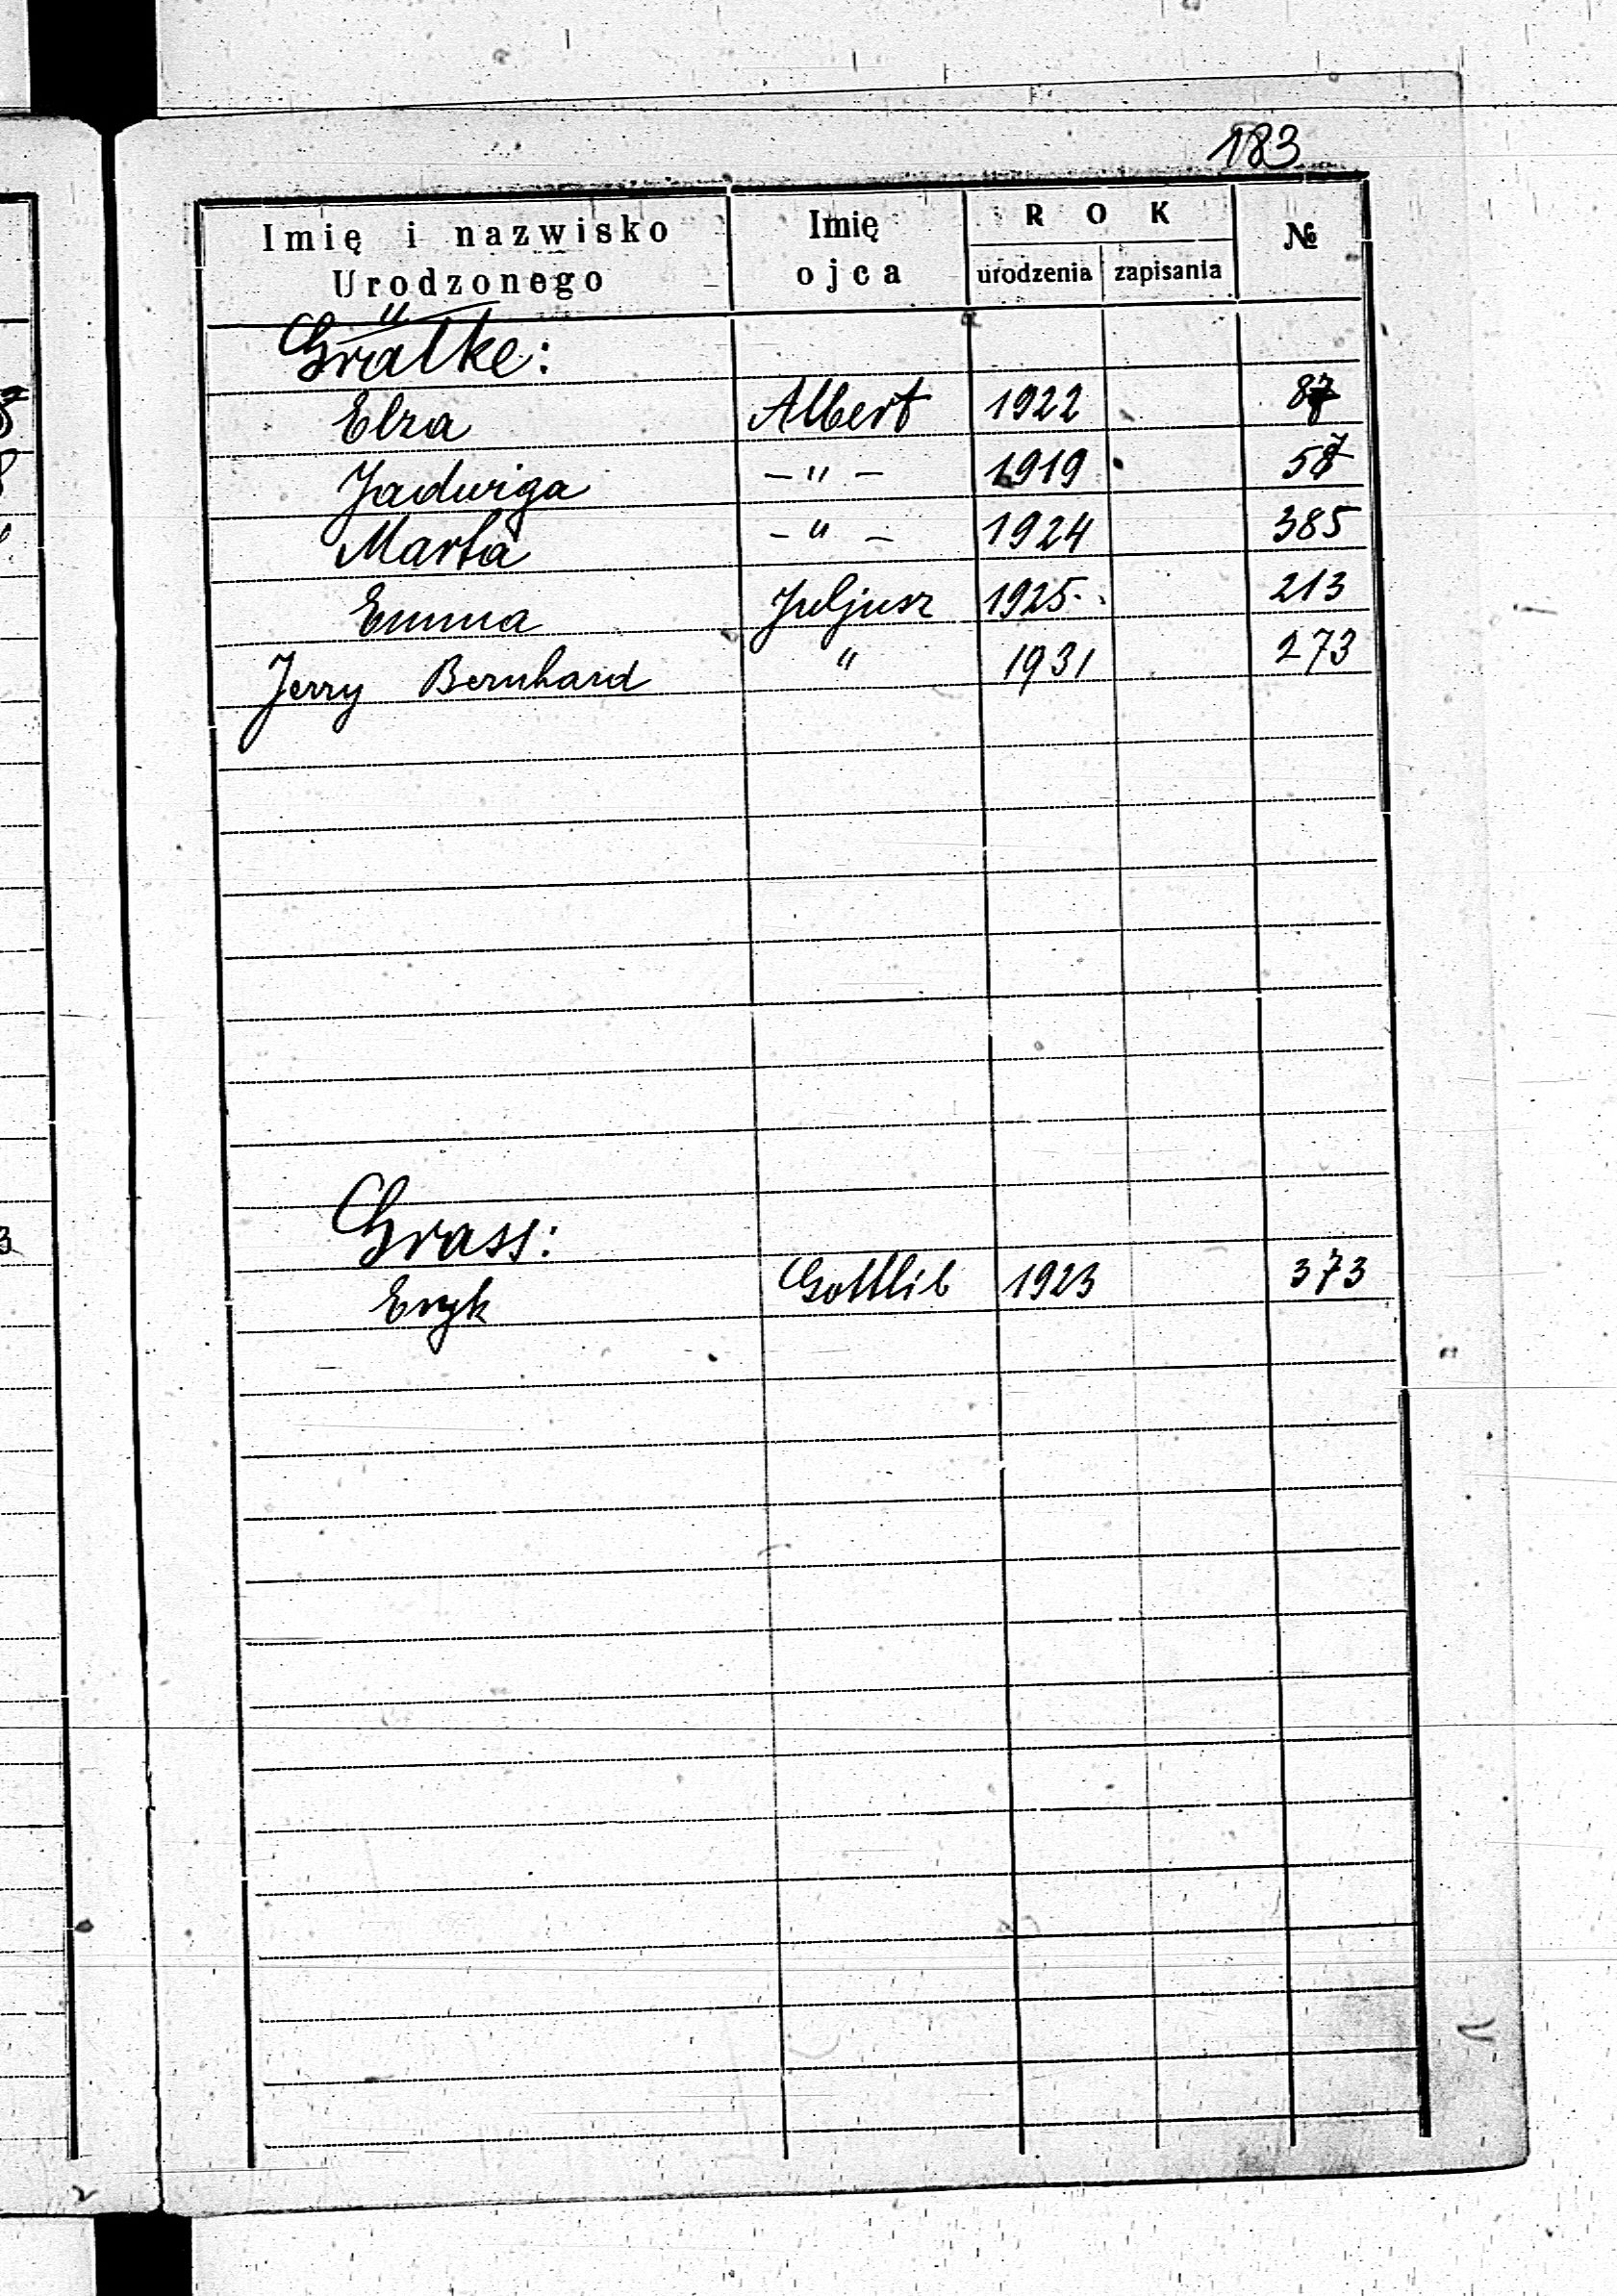 183
Imię i nazwisko Urodzonego Imię ojca ROK urodzenia zapisania №
Grätke:
Elza Albert 1922
Jadwiga — " — 1919 57
Marta - " - 1924 385
Emma Juljusz 1925 213
Jerzy Bernhard " 1931 273
Grass:
Eryk Gottlib 1923 373